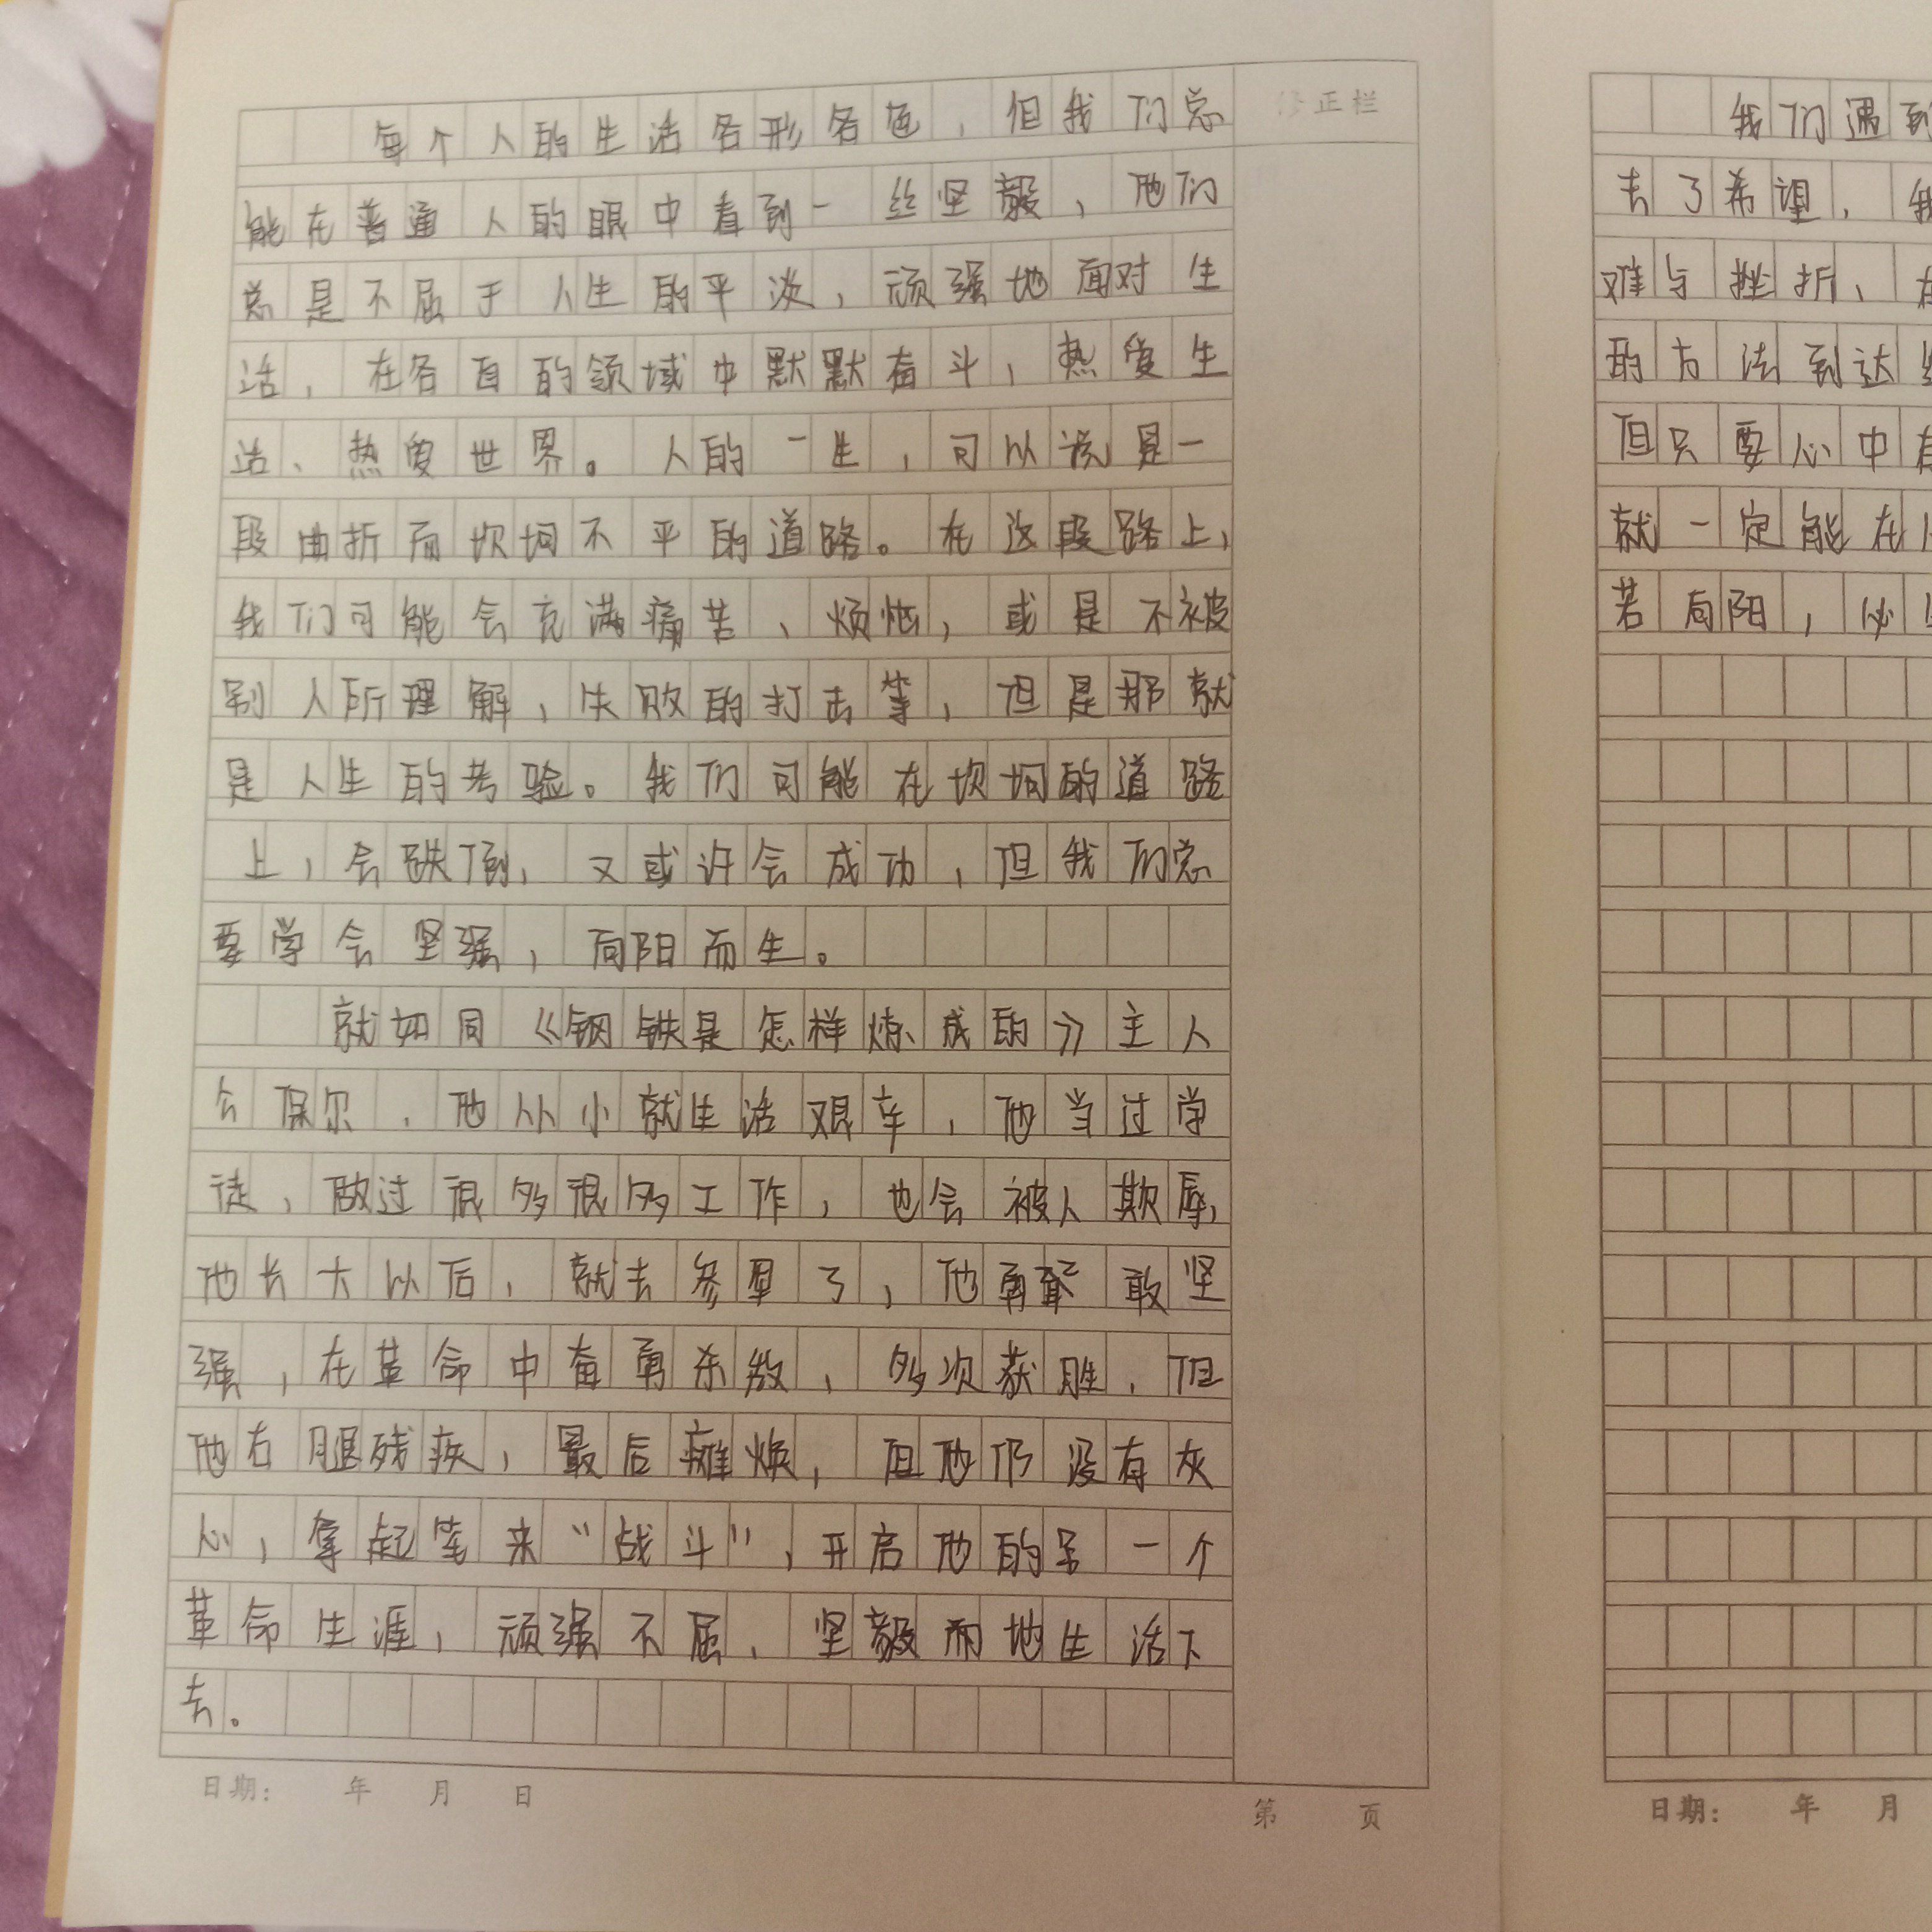 每个人的生活各形各色，但我们总
能在普通人的眼中看到一丝坚毅，他们
总是不屈于人生的平淡，顽强地面对生
活，在各自的领域中默默奋斗，热爱生
活、热爱世界。人的一生，可以说是一
段曲折而坎坷不平的道路。在这段路上，
我们可能会充满痛苦、烦恼，或是不被
别人所理解，失败的打击等，但是那就
是人生的考验。我们可能在坎坷的道路
上，会跌倒，又或许会成功，但我们总
要学会坚强，向阳而生。
就如同《钢铁是怎样炼成的》主人
公保尔，他从小就生活艰辛，他当过学
徒，做过很多很多工作，也会被人欺辱，
他长大以后，就去参军了，他勇敢坚
强，在革命中奋勇杀敌，多次获胜，但
他右腿残疾，最后瘫痪，但他仍没有灰
心，拿起笔来“战斗”，开启他的另一个
革命生涯，顽强不屈，坚毅而地生活下
去。
修正栏
日期： 年 月 日
第 页
我们遇到
去了希望，我
难与挫折，在
的方法到达
但只要心中有
就一定能在
若向阳，必
日期： 年 月